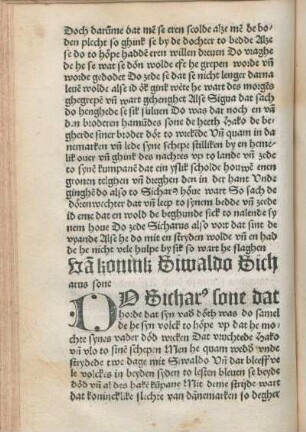 Doch darūme dat mē se eren scolde alze mē de bo-
den plecht so ghink se by de dochter to bedde Alze
se do to hōpe hadde eren willen dreuen Do vraghe
de he se wat se dōn wolde efft he grepen worde vn̄
worde gedodet Do zede se dat se nicht lenger darna
leuē wolde alse id ok gink wēte he wart des morgēs
ghegrepē vn̄ wart gehenghet Alse Signa dat sach
do henghede se sik sulueu Do was dar noch en vā
den broderen hamūdes sone de heeth Hako de be-
gherde siner broder dōt to wrekēde Vn̄ quam in da
nemarken vn̄ lede syne schepe stilliken by en heme-
lik ouer vn̄ ghink des nachtes vp to lande vn̄ zede
to synē kumpanē dat en yslik scholde houwē enen
gronen telghen vn̄ dreghen den in der hant Vnde
ginghē do also to Sichar9 hōue wart So sach de
dōrenwechter dat vn̄ leep to synem bedde vn̄ zede
id eme dat en wold de beghunde sick to nalende sy
nem houe Do zede Sicharus also vort dat sint de
vyande Alse he do mit en stryden wolde vn̄ en had
de he nicht vele hulpe by sik so wart he slaghen
Vā konink Siwaldo Sich
arus sone
DO Sichar9 sone dat
horde dat syn vad dōth was do samel
de he syn volck to hōpe vp dat he mo-
chte synes vader dōd wrekē Dat vruchtede Hako
vn̄ vlo to sinē schepen Men he quam wedd vnde
strydede twe dage mit Siwaldo Vn̄ dar bleeff ve
le volckes in beyden syden to lesten bleuen se beyde
dōd vn̄ al des hakē kūpane Mit deme stryde wart
dat koninclike slechte van dānemarken so degher